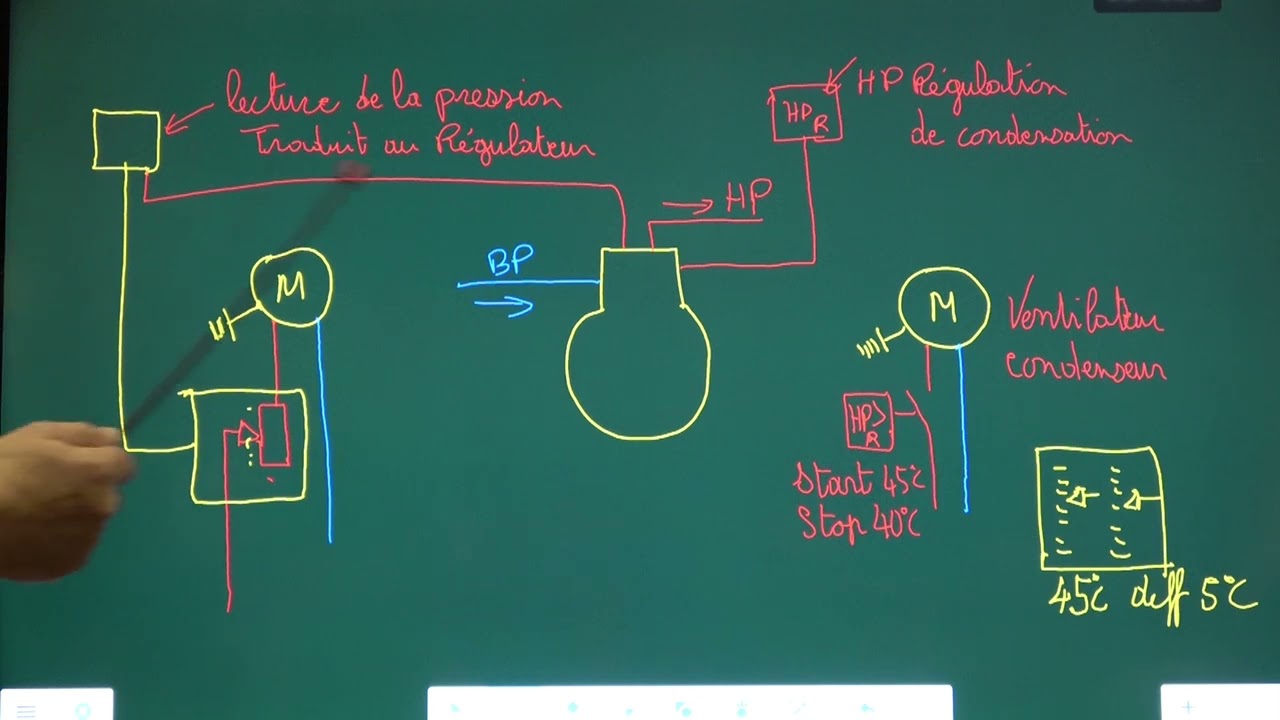 lecture de la pression
Traduit au Régulateur
HP R
HP Régulation
de condensation
HP
BP
M
M
Ventilateur
condenseur
HP>
R
Start 45°C
Stop 40°C
45°C deff 5°C